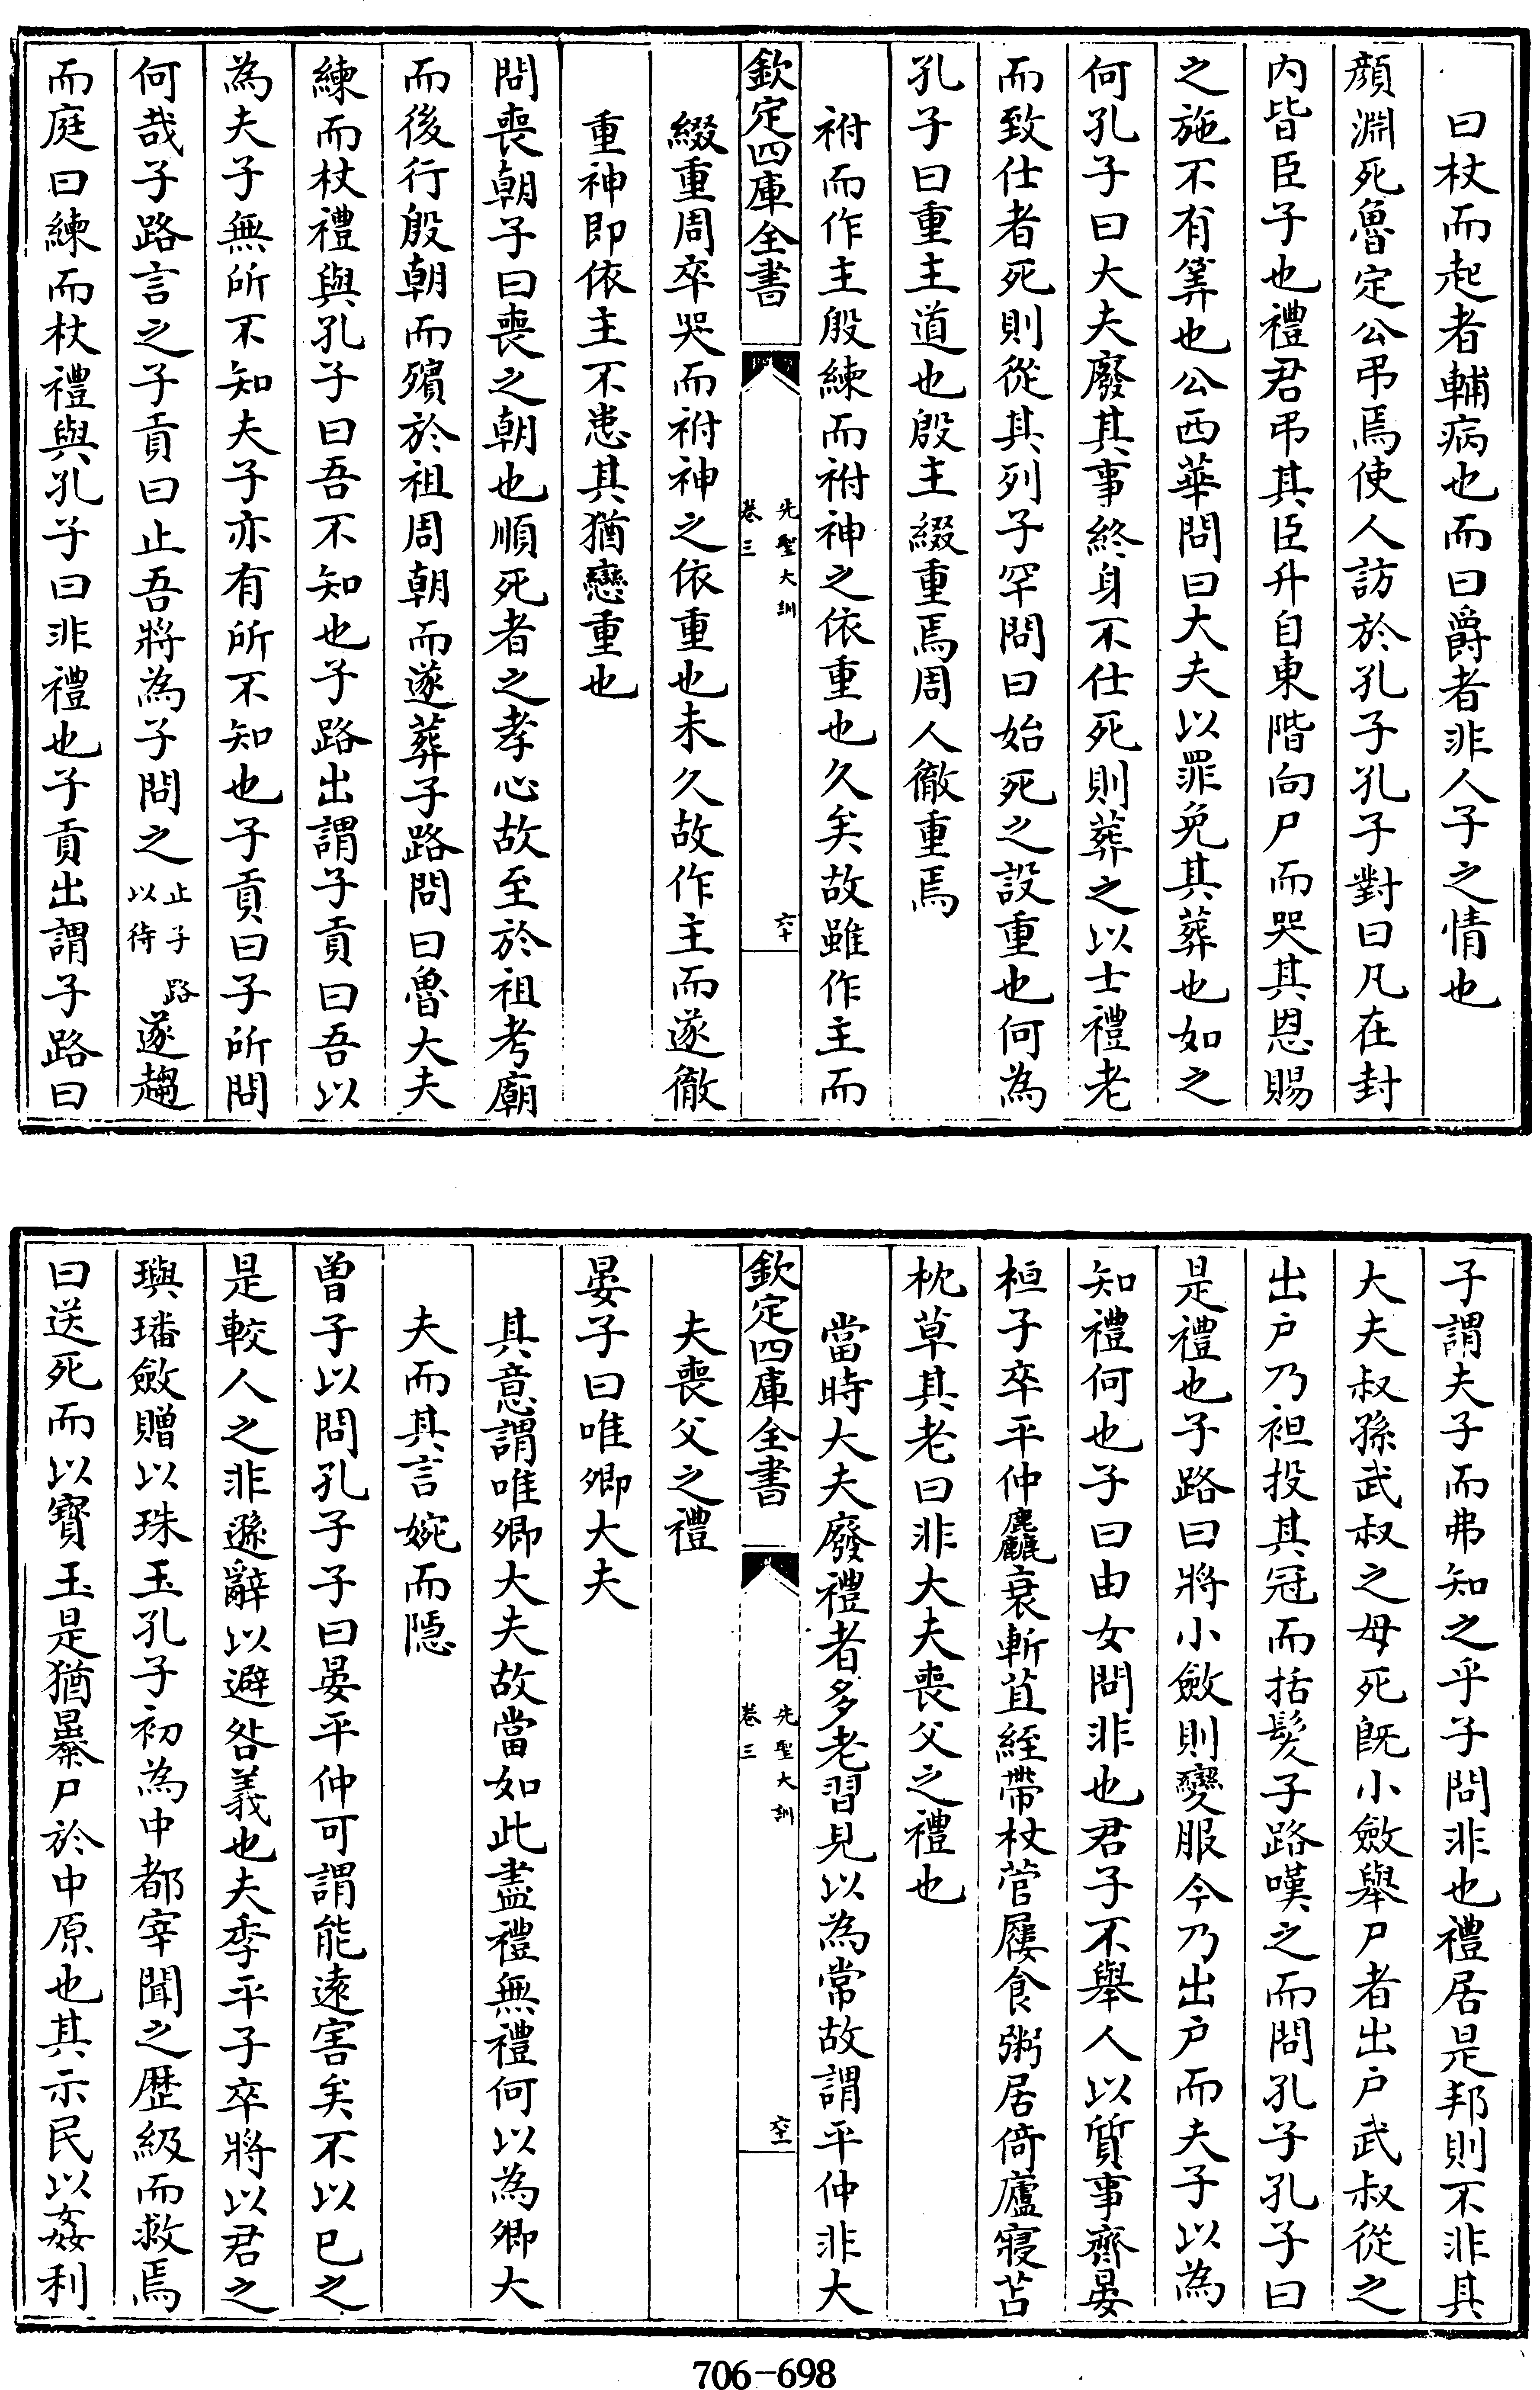 曰杖而起者輔病也而曰爵者非人子之情也
顔淵死魯定公弔焉使人訪於孔子孔子對曰凡在封
内皆臣子也禮君弔其臣升自東階向尸而哭其恩賜
之施不有筭也公西華問曰大夫以罪免其葬也如之
何孔子曰大夫廢其事終身不仕死則葬之以士禮老
而致仕者死則從其列子罕問曰始死之設重也何為
孔子曰重主道也殷主綴重焉周人徹重焉
祔而作主殷練而祔神之依重也久矣故雖作主而
欽定四庫全書
先聖大訓
卷三
六十
綴重周卒哭而祔神之依重也未久故作主而遂徹
重神即依主不患其猶戀重也
問喪朝子曰喪之朝也順死者之孝心故至於祖考廟
而後行殷朝而殯於祖周朝而遂葬子路問曰魯大夫
練而杖禮與孔子曰吾不知也子路出謂子貢曰吾以
為夫子無所不知夫子亦有所不知也子貢曰子所問
何哉子路言之子貢曰止吾將為子問之止子路以待遂趨
而庭曰練而杖禮與孔子曰非禮也子貢出謂子路曰
子謂夫子而弗知之乎子問非也禮居是邦則不非其
大夫叔孫武叔之母死既小斂舉尸者出户武叔從之
出户乃袒投其冠而括髮子路嘆之而問孔子孔子曰
是禮也子路曰將小斂則變服今乃出户而夫子以為
知禮何也子曰由女問非也君子不舉人以質事齊晏
桓子卒平仲麤衰斬苴絰帶杖菅屨食粥居倚廬寢苫
枕草其老曰非大夫喪父之禮也
當時大夫廢禮者多老習見以為常故謂平仲非大
欽定四庫全書
先聖大訓
卷三
六十一
夫喪父之禮
晏子曰唯卿大夫
其意謂唯卿大夫故當如此盡禮無禮何以為卿大
夫而其言婉而隠
曽子以問孔子子曰晏平仲可謂能逺害矣不以已之
是較人之非遜辭以避咎義也夫季平子卒將以君之
璵璠斂贈以珠玉孔子初為中都宰聞之歴級而救焉
曰送死而以寳玉是猶暴尸於中原也其示民以姦利
706-698